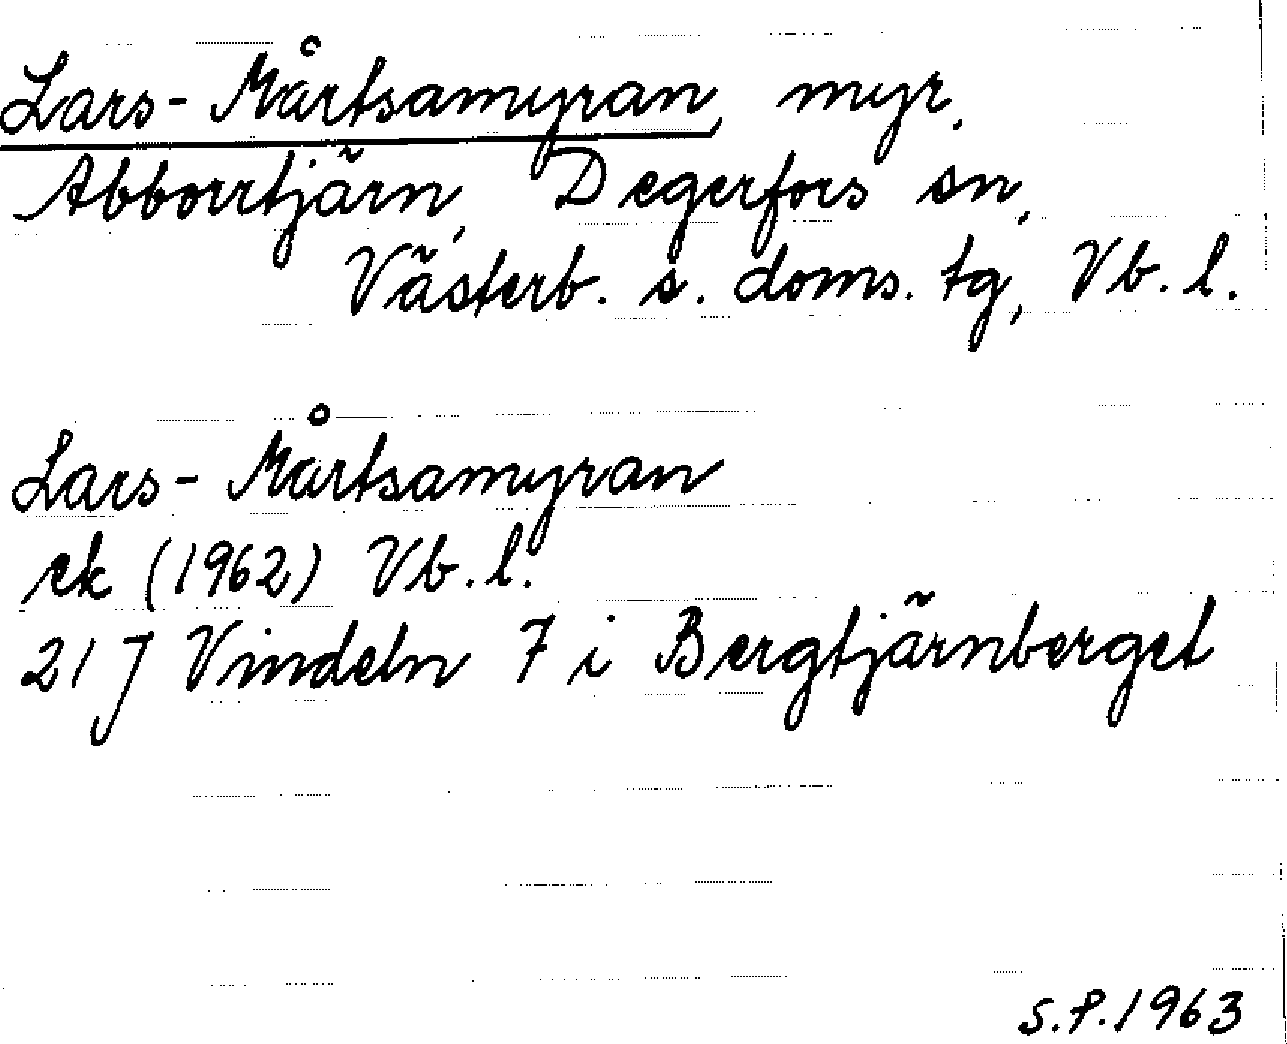 Lars-Mårtsamyran, myr.
Abborrtjärn, Degerfors sn,
Västerb. s. doms. tg, Vb. l.
Lars-Mårtsamyran
ek (1962) Vb. l.
21 J Vindeln 7 i Bergtjärnberget
S.P. 1963